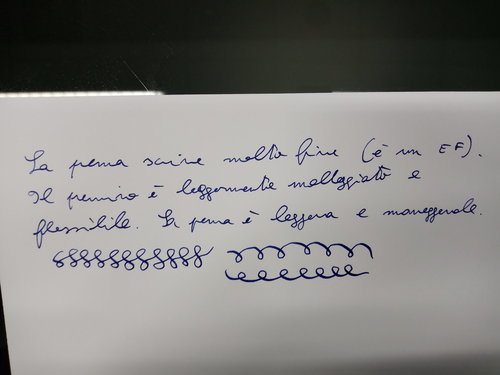 La penna scrive molto fine (è un EF).
Il pennino è leggermente molleggiato e
flessibile. La penna è leggera e maneggevole.